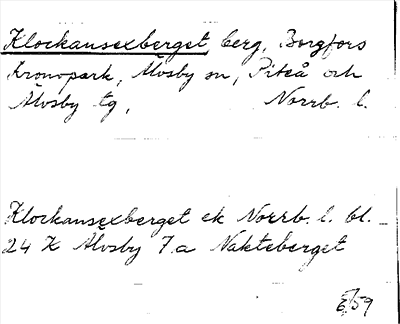 Klockansexberget, berg, Borgfors
Kronopark, Älvsby sn, Piteå och
Älvsby tg, Norrb. l.
Klockansexberget ek Norrb. l. bl.
24 K Älvsby 7.a Nakteberget
E/59